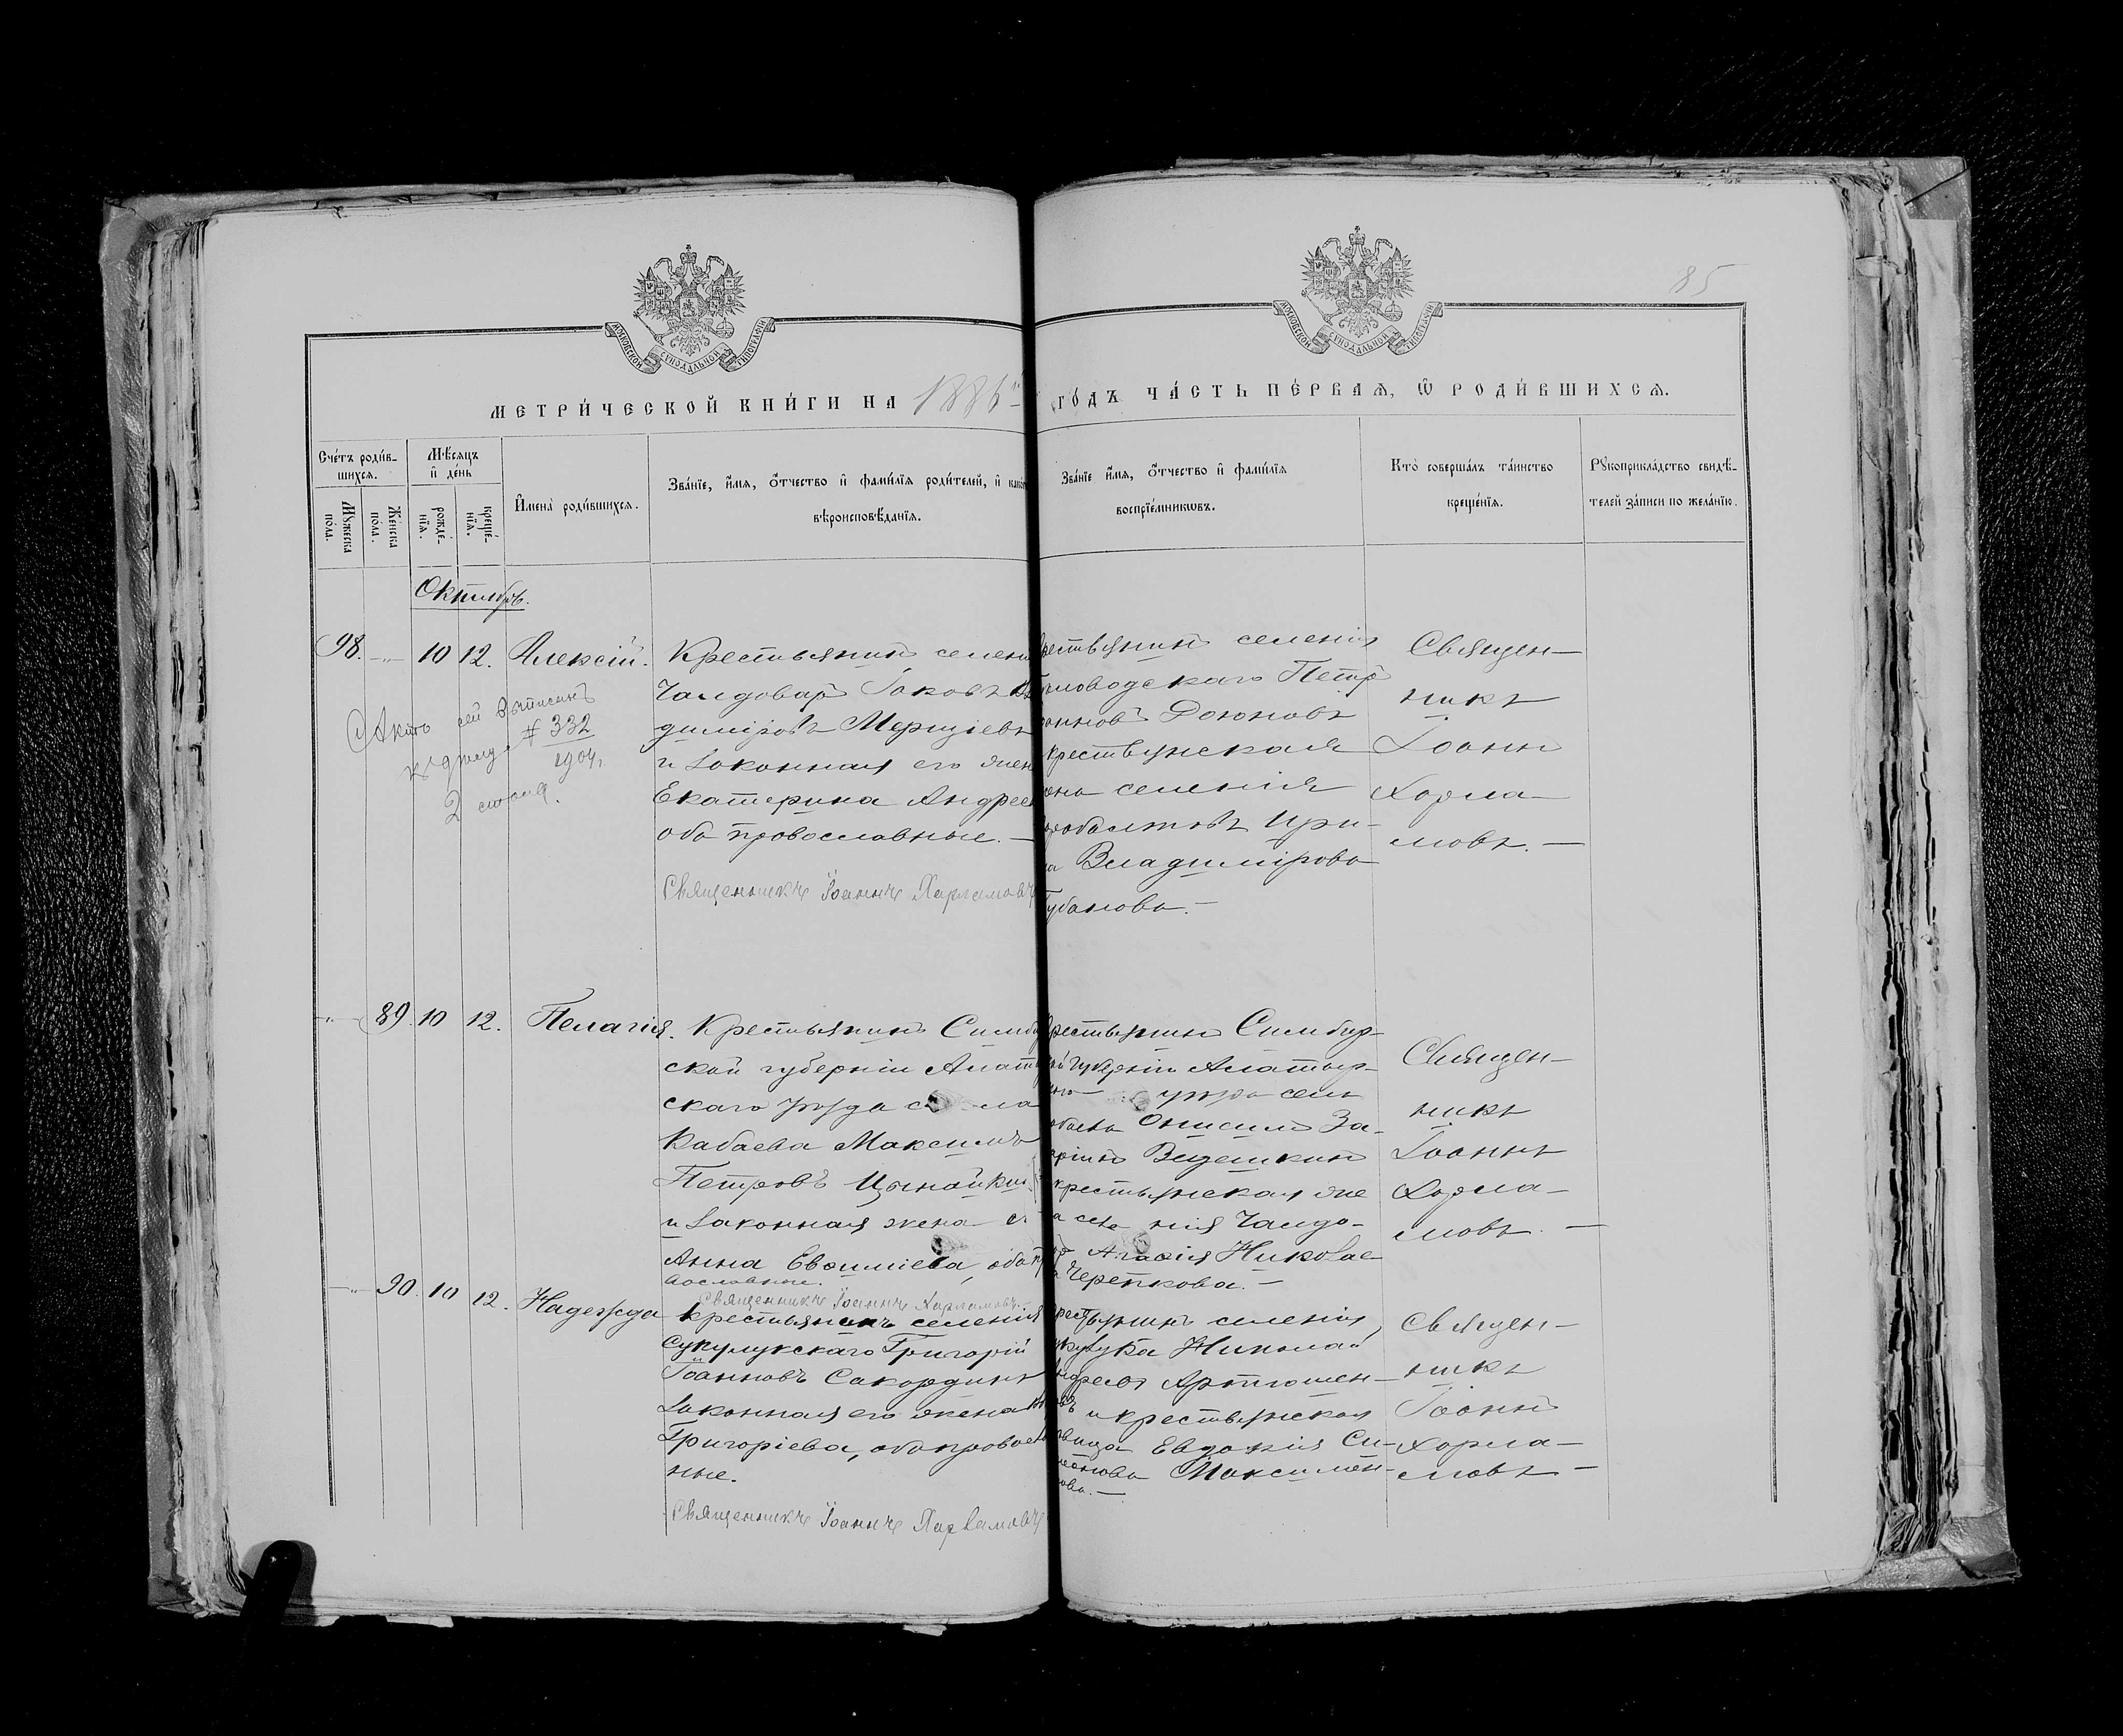 85
МОСКОВСКОЙ СѴНОДАЛЬНОЙ ТИПОГРАФІИ
МОСКОВСКОЙ СѴНОДАЛЬНОЙ ТИПОГРАФІИ
МЕТРИ́ЧЕСКОЙ КНИ́ГИ НА 1886й
ГО́ДЪ ЧА́СТЬ ПЕ́РВАѦ, Ѿ РОДИ́ВШИХСѦ.
Сче́тъ роди́в-
шихсѧ.
Мꙋ́жеска
пола.
Же́нска
по́ла.
Мѣ́сяцъ
и҆ де́нь
рожде́-
нїѧ.
креще́-
нїѧ.
И҆мена̀ роди́вшихсѧ.
Зва́нїе, и҆́мѧ, ѻ҆́тчество и҆ фами́лїѧ роди́телей, и҆ како́
вѣроисповѣ́данїѧ.
Зва́нїе и҆́мѧ, ѻ҆́тчество и҆ фами́лїѧ
воспрїе́мникѡвъ.
Кто̀ соверша́лъ та́инство
креще́нїѧ.
Рꙋкоприкла́дство свидѣ́-
телей за́писи по жела́нїю.
Октябрь.
98. —„— 10 12. Алексій.
Крестьянинъ селен
Чалдовар Іаковъ Вл
диміровъ Мерцуіевъ
и законная его жен
Екатерина Андрее
оба православные. —
Священникъ Іоаннъ Харламовъ
Актъ сей выписанъ
# 332
1904г.
рестьянинъ селенія
ловодскаго Петръ
оанновъ
крестьянская
она селенія
Ири-
а Владимірова
Губанова. —
Священ—
никъ
Іоаннъ
Харла—
мовъ. —
—„— 89. 10 12. Пелагія.
Крестьянинъ Симби
ской губерніи Алаты
скаго уѣзда села
Кабаева Максимъ
Петровъ Цы­найки
и законная жена е
Анна Евѳиміева, оба пр
вославные.
Священникъ Іоаннъ Харламовъ.
рестьянинъ Симбир-
й губерніи Алатыр-
уѣзда сел
баева Онисимъ За-
аріинъ Ведешкинъ
крестьянская же
а селенія Чалдо-
Агаѳія Николае
Черепкова. —
Священ—
никъ
Іоаннъ
Харла—
мовъ. —
—„— 90. 10 12. Надежда
крестьянинъ селенія
Сукулукскаго Григорій
Іоанновъ Сакардинъ
законная его жена
Григоріева, оба правосла
ные.
Священникъ Іоаннъ Харламовъ
рестьянинъ селенія
Николай
ндреев Артюшен-
и крестьянская
вица Евдокія Си-
меонова Максимен-
кова. —
Священ—
никъ
Іоаннъ
Харла—
мовъ —